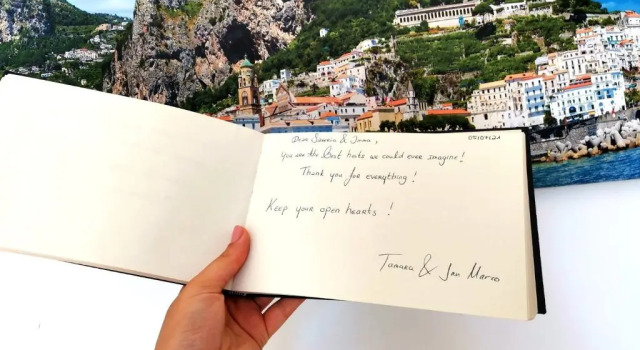 05/07/21
Dear & Iman,
You are the Best hosts we could ever imagine!
Thank you for everything!
Keep your open hearts!
Tamara & Jan Marco